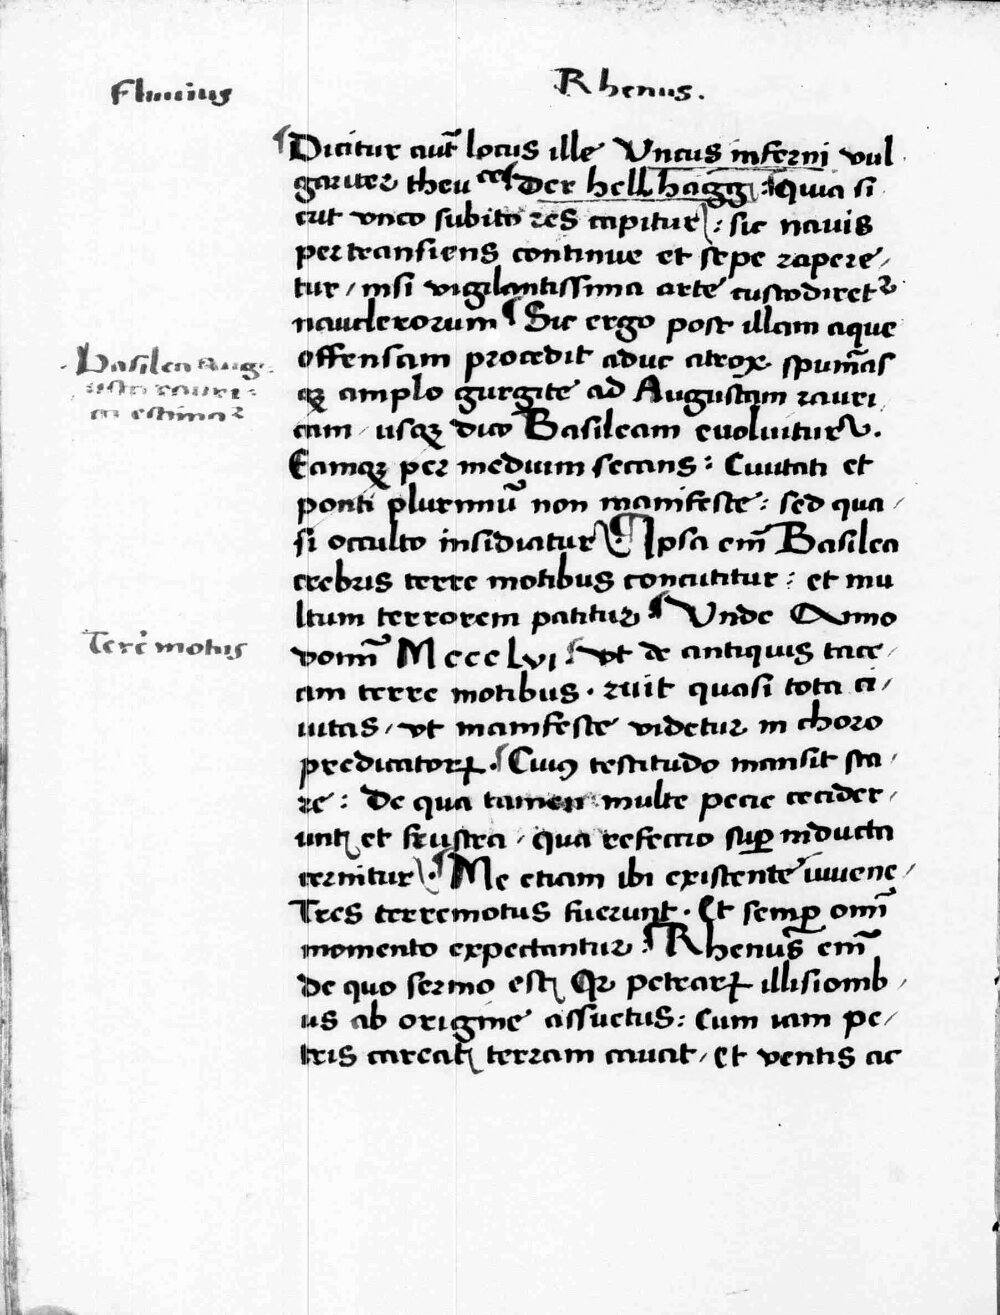 Fluuius
Rhenus.
Dicitur aut̄ locus ille Vncus inferni vul
gariter theu ces der hell hagg : Quia si
cut vnco subito res capitur : sic nauis
pertransiens continue et sepe rapere/
tur / nisi vigilantissima arte custodiret᷑
nauclerorum ¶ Sic ergo post illam aque
offensam procedit aduc atrox spum̄as
qꝫ amplo gurgite ad Augustam rauri
cam / usqꝫ dico Basileam euoluitur.
Eamqꝫ per medium secans : Ciuitati et
ponti plurimū non manifeste : sed qua /
si occulto insidiatur ¶ Ipsa em̄ Basilea
crebris terre motibus concutitur : et mu
ltum terrorem patitur ¶ Vnde Anno
domī Mccclvi ¶ vt de antiquis tace/
am terre motibus . ruit quasi tota ci/
uitas / vt manifeste videtur in choro
predicatorꝝ . Cuiꝰ testitudo mansit sta/
re : De qua tamen multe pecie cecider/
unt et frustra / qua refectio suꝑ inducta
cernitur ¶ Me etiam ibi existente iuuene/
Tres terremotus fuerunt . Et semꝑ omī
momento expectantur . ¶ Rhenus em̄
de quo sermo est Qꝫ petrarꝝ illisionib/
us ab origine assuetus : Cum iam pe/
tris careat terram cauat / et ventis ac
Basilea Aug
usta rauri
ca
Tere motus